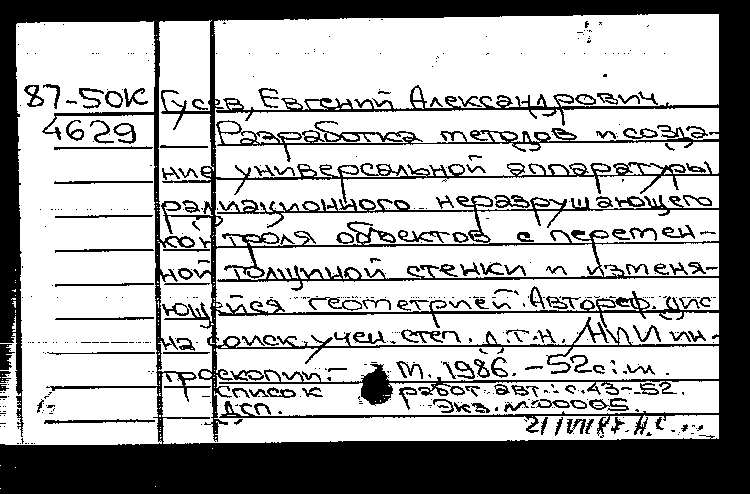 87-50К Гусев, Евгений Александрович.
4629 Разработка методов и созда-
ние универсальной аппаратуры
радиационного неразрушающего
контроля объектов с перемен-
ной толщиной стенки и изменя-
ющейся геометрией. Автореф. дис
на соиск. учен. степ. д.т.н. /НИИ ин-
троскопии.- М., 1986. -52с.: ил.
Список работ авт.: с.43-52.
ДСП. Экз. №00005.
21/VII 87. А.С.